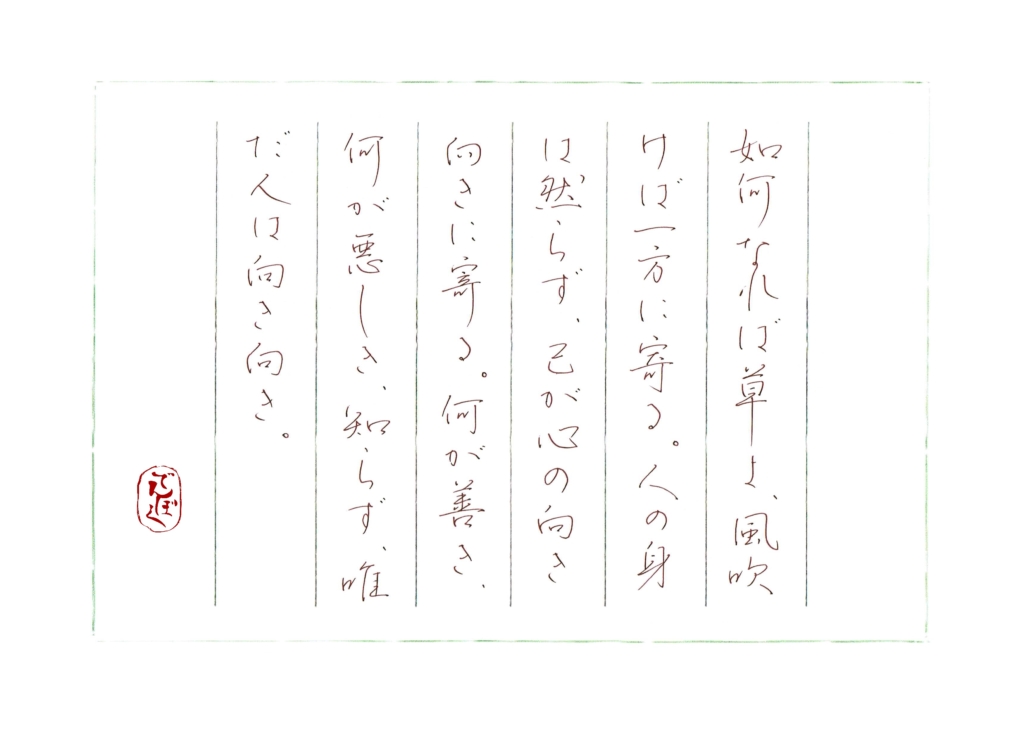 如何なれば草よ、風吹
けば一方に寄る。人の身
は然らず、己が心の向き
向きに寄る。何が善き、
何が悪しき、知らず、唯
だ人は向き向き。
でんぼく